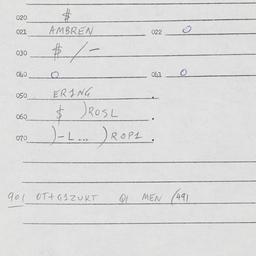 020 $
021 AMBREN 022 O
030 $ / -
040 O 041 O
050 ER1NG .
060 $ )ROSL
070 )-L... )ROP1 .
901 OT+G1ZUKT Q1 MEN (491